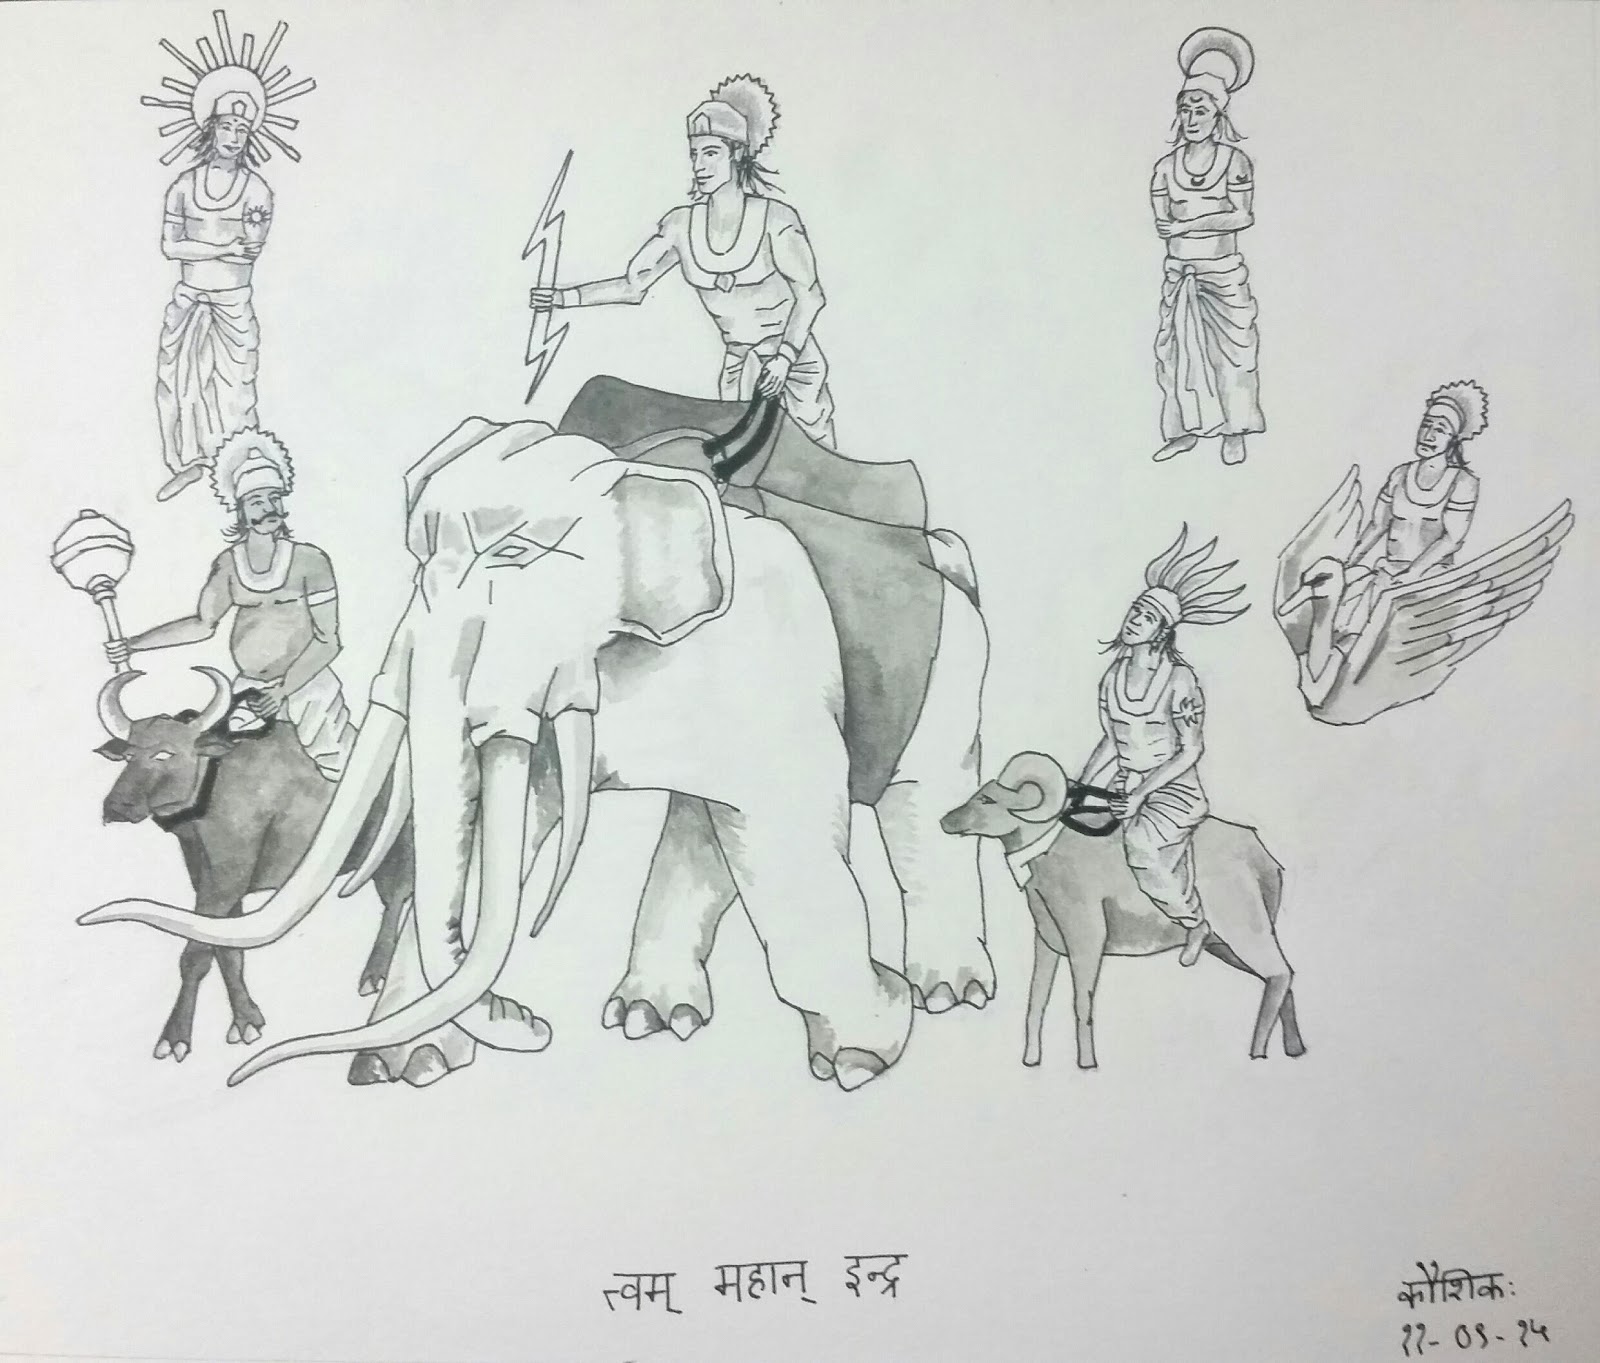 त्वम् महान् इन्द्र
कौशिकः
११-०९-१५